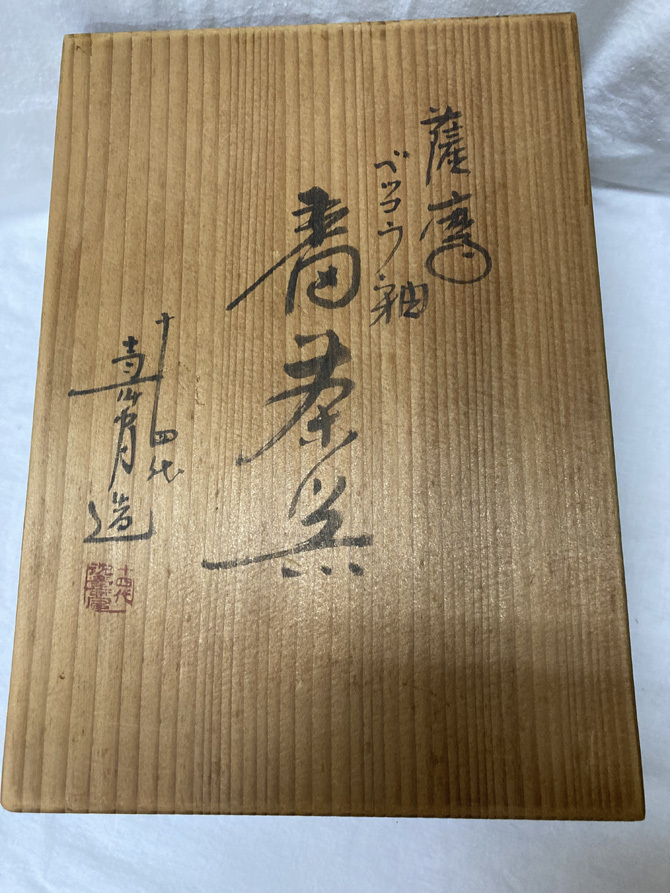 薩摩
ベッコウ釉
番茶器
十四代
壽官造
十四代